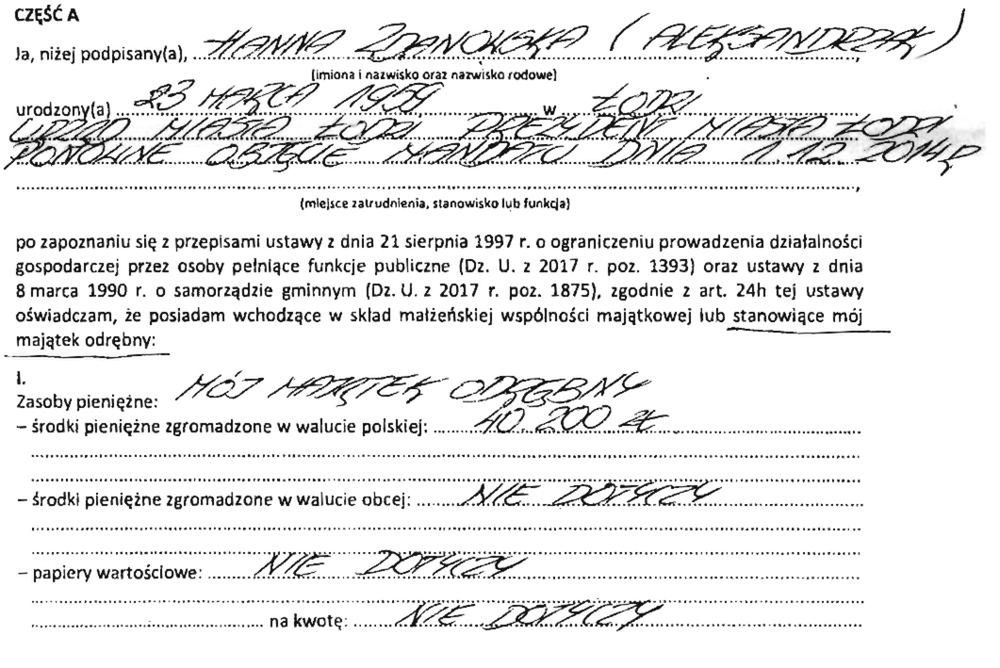 CZĘŚĆ A
Ja, niżej podpisany(a), HANNA ZDANOWSKA (ALEKSANDRZAK),
(imiona i nazwisko oraz nazwisko rodowe)
urodzony(a) 23 MARCA 1959 w ŁODZI
URZĄD MIASTA ŁODZI PREZYDENT MIASTA ŁODZI
PONOWNE OBJĘCIE MANDATU DNIA 1.12.2014R
,
(miejsce zatrudnienia, stanowisko lub funkcja)
po zapoznaniu się z przepisami ustawy z dnia 21 sierpnia 1997 r. o ograniczeniu prowadzenia działalności
gospodarczej przez osoby pełniące funkcje publiczne (Dz. U. z 2017 r. poz. 1393) oraz ustawy z dnia
8 marca 1990 r. o samorządzie gminnym (Dz. U. z 2017 r. poz. 1875), zgodnie z art. 24h tej ustawy
oświadczam, że posiadam wchodzące w skład małżeńskiej wspólności majątkowej lub stanowiące mój
majątek odrębny:
I.
Zasoby pieniężne: MÓJ MAJĄTEK ODRĘBNY
– środki pieniężne zgromadzone w walucie polskiej: 40.200 ZŁ
– środki pieniężne zgromadzone w walucie obcej: NIE DOTYCZY
– papiery wartościowe: NIE DOTYCZY
na kwotę: NIE DOTYCZY